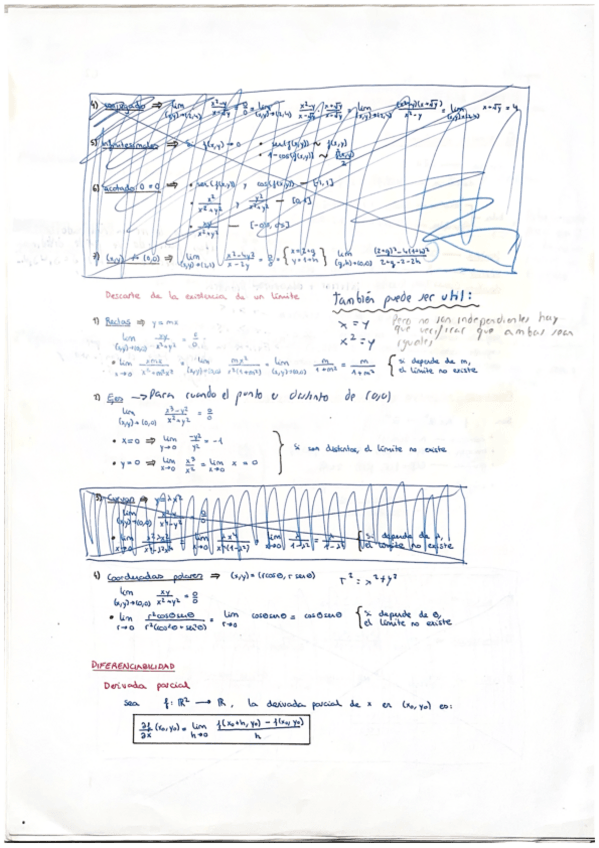 4) conjugado ⇒ lim (x,y)→(2,4) = 0/0 = lim (x,y)→(2,4) x²-y/x-√y · x+√y/x+√y = lim (x,y)→(2,4) (x²-y)(x+√y)/x²-y = lim (x,y)→(2,4) x+√y = 4
5) Infinitesimales ⇒ Si f(x,y) → 0 • sen(f(x,y)) ~ f(x,y)
• 1-cos(f(x,y)) ~
6) acotado · 0 = 0 ⇒ • sen(f(x,y)) y cos(f(x,y)) — [-1,1]
• x²/x²+y² y y²/x²+y² — [0,1]
• xy/x²+y² —
7) (x,y) ↛ (0,0) ⇒ lim
Descarte de la existencia de un límite
también puede ser util:
1) Rectas ⇒ y = mx
x = y
pero no son independientes hay
que verificar que ambas sean
iguales
x² = y
lim (x,y)→(0,0) xy/x²+y² = 0/0
• lim x→0 xmx/x²+m²x² = lim (x,y)→(0,0) mx²/x²(1+m²) = lim (x,y)→(0,0) m/1+m² = m/1+m² { si depende de m,
el límite no existe
2) Ejes → Para cuando el punto es distinto de (0,0)
lim (x,y)→(0,0) x³-y²/x²+y² = 0/0
• x=0 ⇒ lim y→0 -y²/y² = -1
} si son distintos, el límite no existe
• y=0 ⇒ lim x→0 x³/x² = lim x→0 x = 0
3) Curvas ⇒ y = λx²
lim (x,y)→(0,0) = 0/0
{ si depende de λ,
el límite no existe
4) Coordenadas polares ⇒ (x,y) = (r cosθ, r senθ) r² = x²+y²
lim (x,y)→(0,0) xy/x²+y² = 0/0
• lim r→0 r²cosθsenθ/r²(cos²θ+sen²θ) = lim r→0 cosθsenθ = cosθsenθ { si depende de θ,
el límite no existe
DIFERENCIABILIDAD
Derivada parcial
sea f: ℝ² → ℝ, la derivada parcial de x en (x₀,y₀) es:
∂f/∂x (x₀,y₀) = lim h→0 f(x₀+h, y₀) - f(x₀,y₀)/h